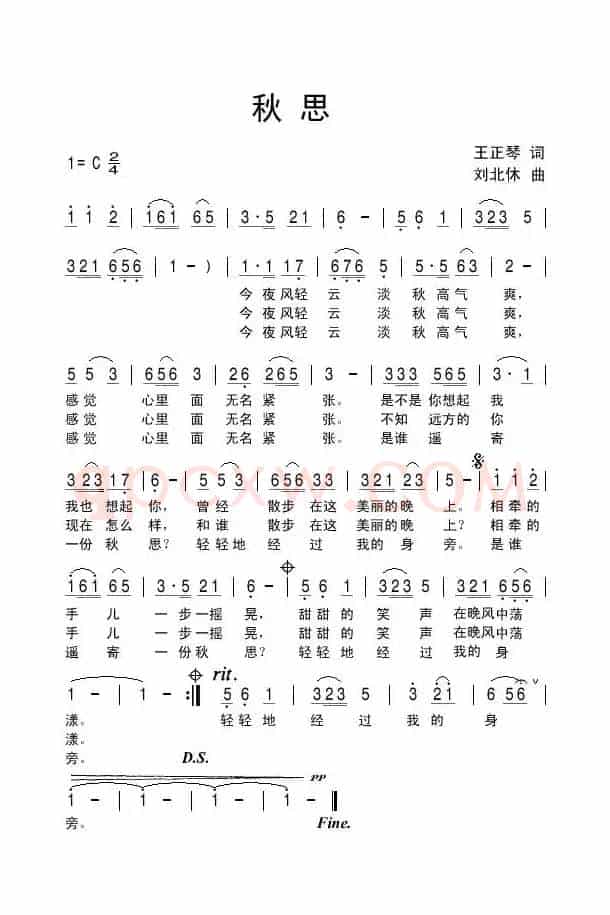 秋 思
1= C 2/4
王正琴 词
刘北休 曲
1 1 2 | 161 65 | 3·5 21 | 6 - | 56 1 | 323 5 |
321 656 | 1 - ) | 1·1 17 | 676 5 | 5·5 63 | 2 - |
今夜风轻 云 淡 秋高气 爽，
今夜风轻 云 淡 秋高气 爽，
今夜风轻 云 淡 秋高气 爽，
5 5 3 | 656 3 | 26 265 | 3 - | 333 565 | 3· 1 |
感觉 心里 面 无名紧 张。 是不是你想起 我
感觉 心里 面 无名紧 张。 不知 远方的 你
感觉 心里 面 无名紧 张。 是谁 遥 寄
323 17 | 6 - | 5 5 3 | 656 5 | 321 23 | 5 - | 1 1 2 |
我也 想起 你， 曾经 散步 在这 美丽的晚 上。 相牵的
现在 怎么 样， 和谁 散步 在这 美丽的晚 上？ 相牵的
一份 秋 思？ 轻轻地 经 过 我的 身 旁。 是谁
161 65 | 3·5 21 | 6 - | 56 1 | 323 5 | 321 656 |
手 儿 一步一摇 晃， 甜甜 的 笑 声 在晚风中荡
手 儿 一步一摇 晃， 甜甜 的 笑 声 在晚风中荡
遥 寄 一份秋 思？ 轻轻 地 经 过 我的 身
rit.
1 - | 1 - :| 56 1 | 323 5 | 3 21 | 6 56 |
漾。 轻轻地 经 过 我 的 身
漾。
旁。 D.S.
pp
1 - | 1 - | 1 - | 1 - ‖
旁。 Fine.
gpcxw.COM